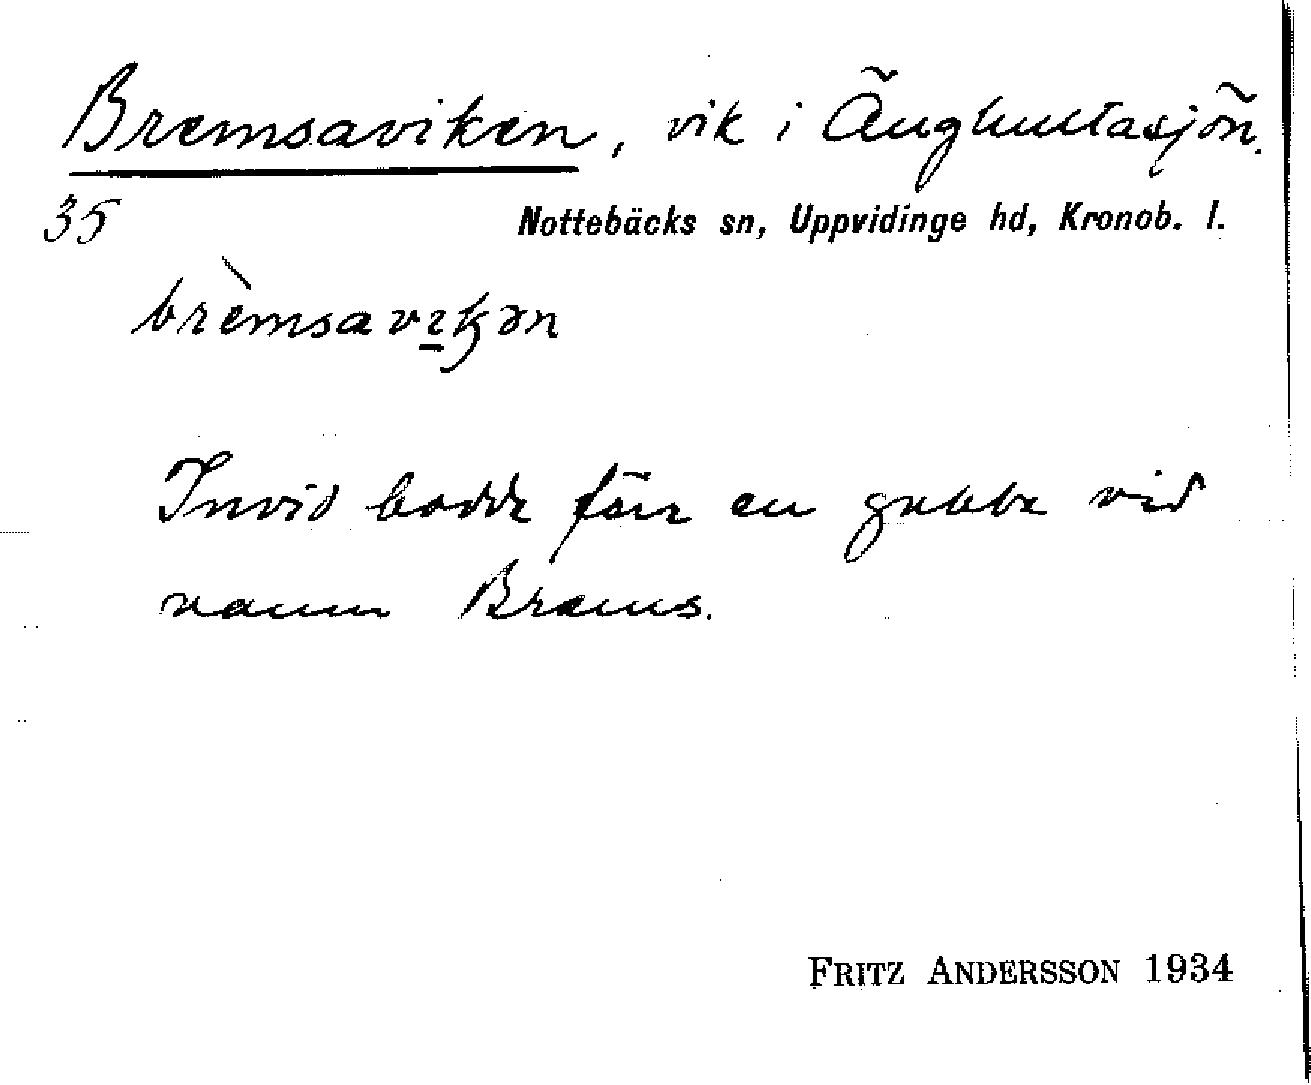 Bremsaviken, vik i Änghultasjön.
35 Nottebäcks sn, Uppvidinge hd, Kronob. l.
brèmsavıkən
Invid bodde förr en gubbe vid
namn Brems.
FRITZ ANDERSSON 1934